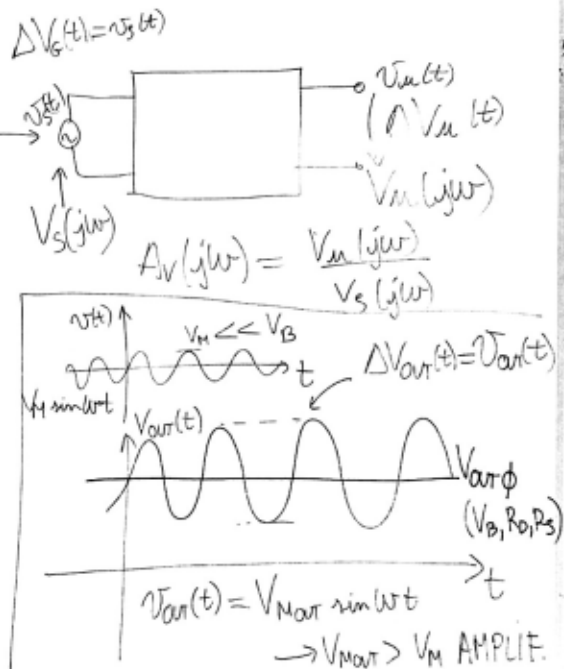 ΔV_G(t) = v_s(t)
v_s(t)
v_u(t)
(ΔV_u(t)
V_u(jω)
V_s(jω)
A_V(jω) = V_u(jω) / V_s(jω)
v(t)
V_M << V_B
t
ΔV_OUT(t) = v_OUT(t)
V_M sin ωt
V_OUT(t)
V_OUTϕ
(V_B, R_D, R_S)
t
v_OUT(t) = V_MOUT sin ωt
→ V_MOUT > V_M AMPLIF.